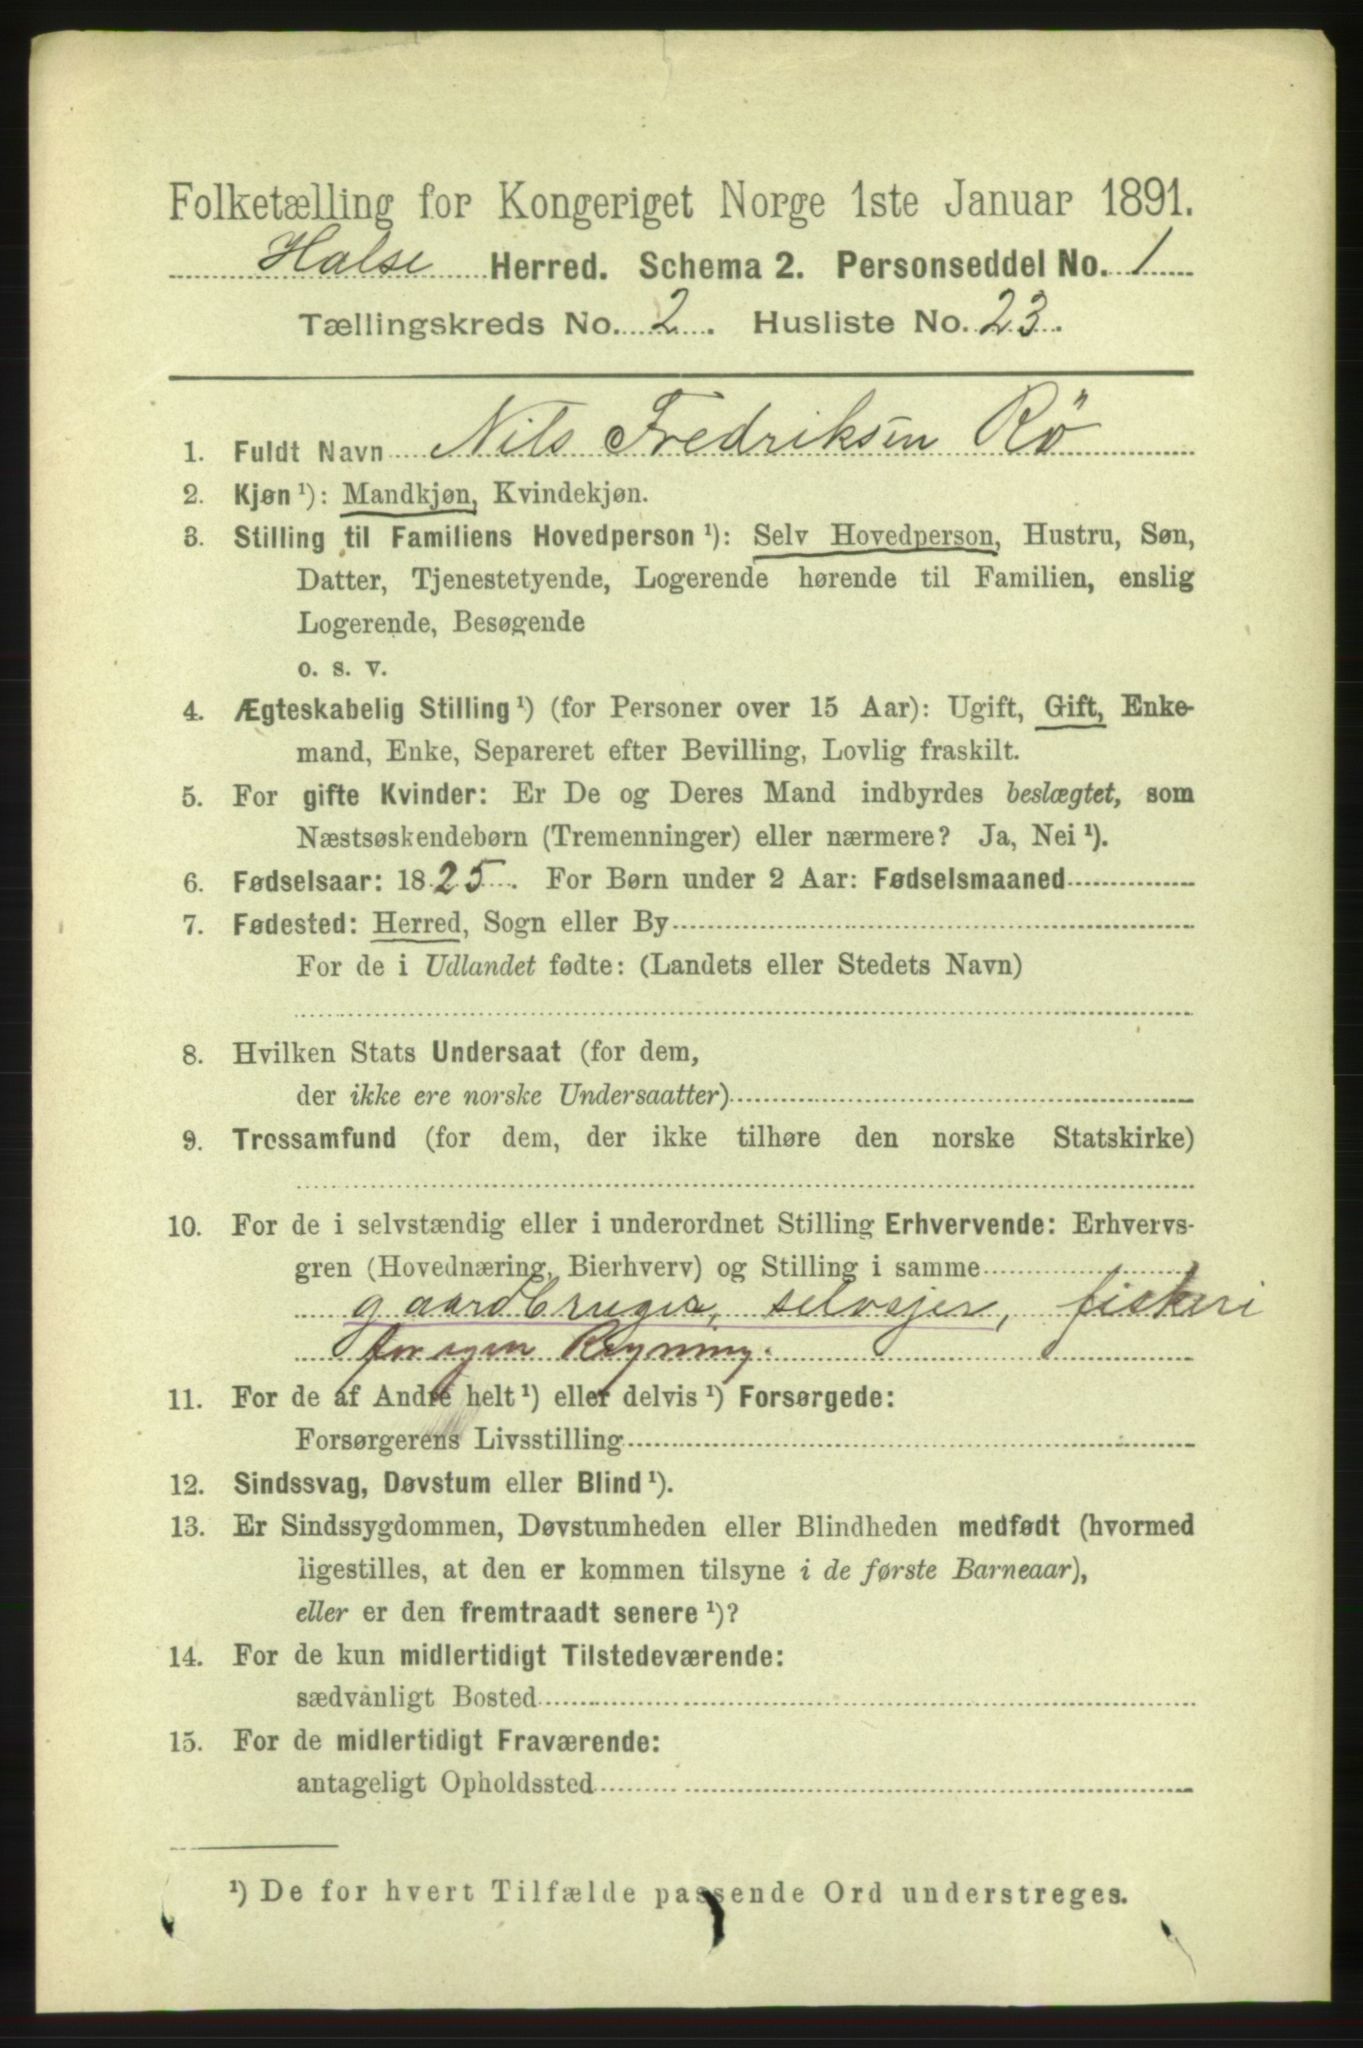 Folketælling for Kongeriget Norge 1ste Januar 1891.
Halse Herred. Schema 2. Personseddel No. 1
Tællingskreds No. 2. Husliste No. 23.
1. Fuldt Navn Nils Fredriksen Rö
2. Kjøn ¹): Mandkjøn, Kvindekjøn.
3. Stilling til Familiens Hovedperson ¹): Selv Hovedperson, Hustru, Søn,
Datter, Tjenestetyende, Logerende hørende til Familien, enslig
Logerende, Besøgende
o. s. v.
4. Ægteskabelig Stilling ¹) (for Personer over 15 Aar): Ugift, Gift, Enke-
mand, Enke, Separeret efter Bevilling, Lovlig fraskilt.
5. For gifte Kvinder: Er De og Deres Mand indbyrdes beslægtet, som
Næstsøskendebørn (Tremenninger) eller nærmere? Ja, Nei ¹).
6. Fødselsaar: 1825. For Børn under 2 Aar: Fødselsmaaned
7. Fødested: Herred, Sogn eller By
For de i Udlandet fødte: (Landets eller Stedets Navn)
8. Hvilken Stats Undersaat (for dem,
der ikke ere norske Undersaatter)
9. Trossamfund (for dem, der ikke tilhøre den norske Statskirke)
10. For de i selvstændig eller i underordnet Stilling Erhvervende: Erhvervs-
gren (Hovednæring, Bierhverv) og Stilling i samme
gaardbruger, selvejer, fiskeri
for egen Regning.
11. For de af Andre helt ¹) eller delvis ¹) Forsørgede:
Forsørgerens Livsstilling
12. Sindssvag, Døvstum eller Blind ¹).
13. Er Sindssygdommen, Døvstumheden eller Blindheden medfødt (hvormed
ligestilles, at den er kommen tilsyne i de første Barneaar),
eller er den fremtraadt senere ¹)?
14. For de kun midlertidigt Tilstedeværende:
sædvanligt Bosted
15. For de midlertidigt Fraværende:
antageligt Opholdssted
¹) De for hvert Tilfælde passende Ord understreges.